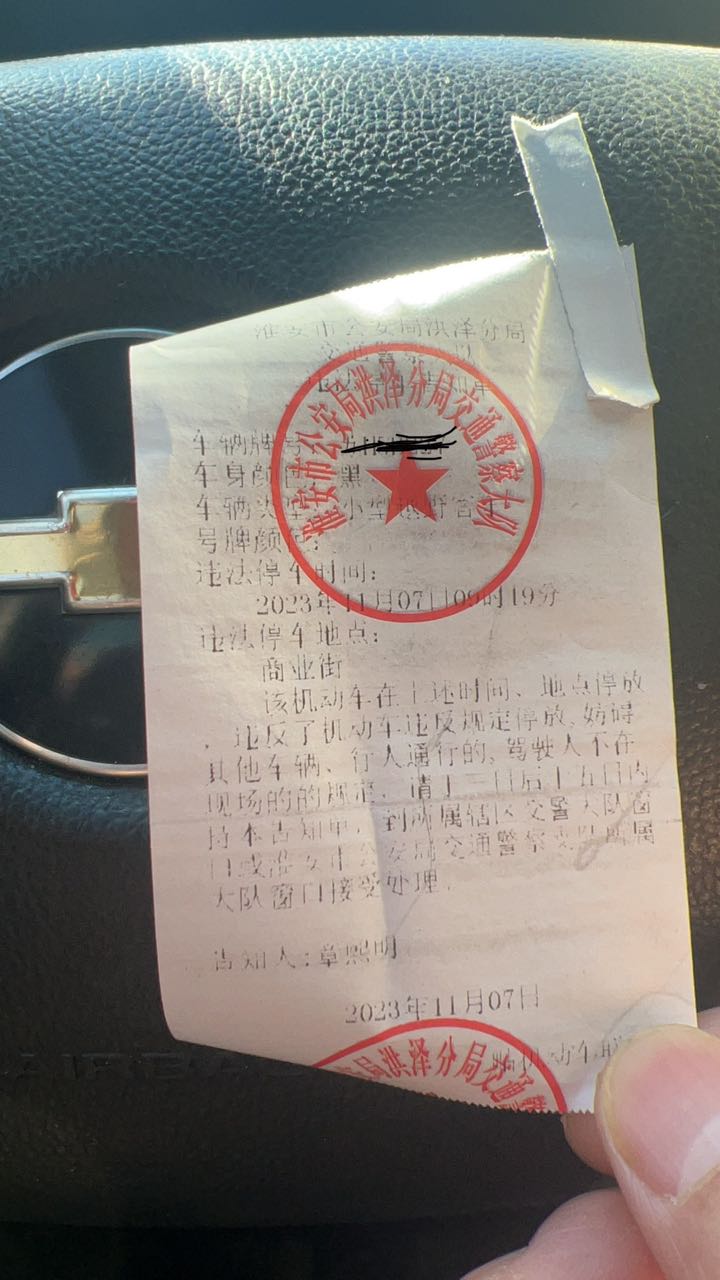 淮安市公安局洪泽分局
交通警察大队
淮安市公安局洪泽分局交通警察大队
车辆牌号
车身颜色：黑
车辆类型：小型越野客车
号牌颜色：
违法停车时间：
2023年11月07日09时19分
违法停车地点：
商业街
该机动车在上述时间、地点停放
，违反了机动车违反规定停放,妨碍
其他车辆、行人通行的,驾驶人不在
现场的的规定，请于三日后十五日内
持本告知单，到所属辖区交警大队窗
口或淮安市公安局交通警察支队所属
大队窗口接受处理。
告知人：章熙明
2023年11月07日
局洪泽分局交通警